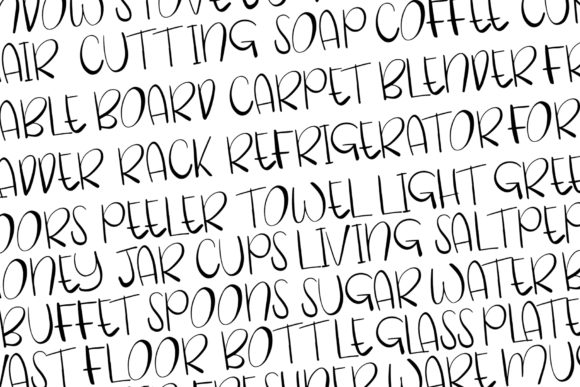 STOVE
HAIR CUTTING SOAP COFFEE
TABLE BOARD CARPET BLENDER FR
LADDER RACK REFRIGERATOR FOR
DOORS PEELER TOWEL LIGHT GREE
HONEY JAR CUPS LIVING SALTPEP
BUFFET SPOONS SUGAR WATER B
FLOOR BOTTLE GLASS PLATE
WARE MU